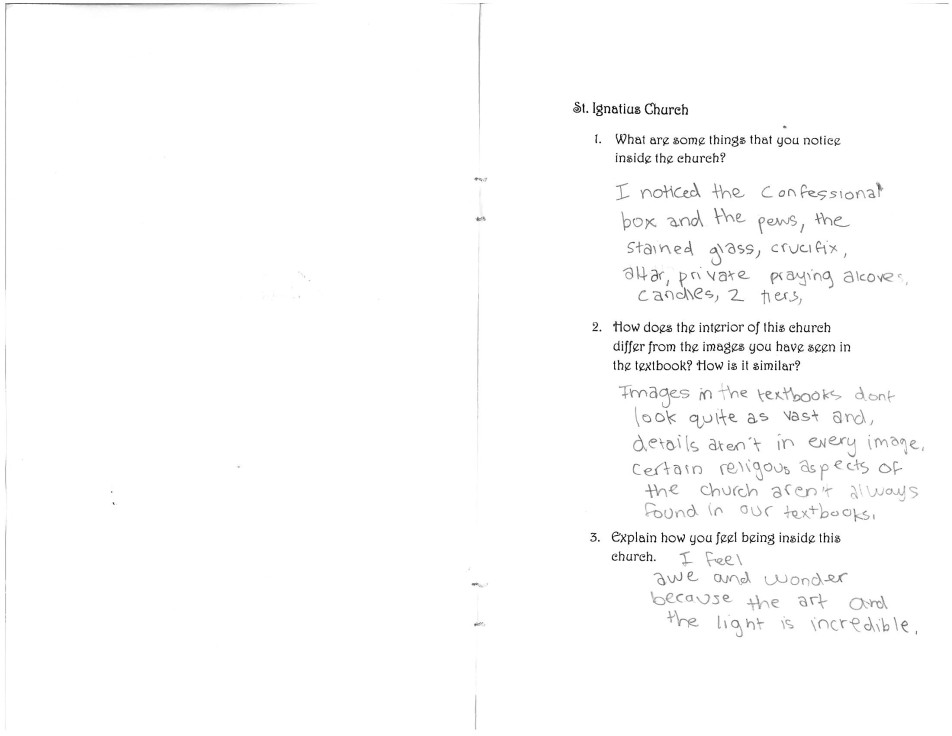 St. Ignatius Church
1. What are some things that you notice
inside the church?
I noticed the confessional
box and the pews, the
stained glass, crucifix,
altar, private praying alcoves,
candles, 2 tiers,
2. How does the interior of this church
differ from the images you have seen in
the textbook? How is it similar?
Images in the textbooks dont
look quite as vast and,
details aren't in every image.
certain religous aspects of
the church aren't always
found in our textbooks.
3. Explain how you feel being inside this
church. I feel
awe and wonder
because the art and
the light is incredible.